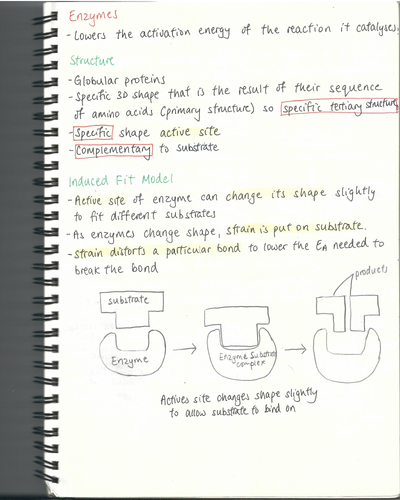 Enzymes
- Lowers the activation energy of the reaction it catalyses.
Structure
- Globular proteins
- Specific 3D shape that is the result of their sequence
of amino acids (primary structure) so specific tertiary structure
- Specific shape active site
- Complementary to substrate
Induced Fit Model
- Active site of enzyme can change its shape slightly
to fit different substrates
- As enzymes change shape, strain is put on substrate.
- Strain distorts a particular bond to lower the EA needed to
break the bond
products
substrate
Enzyme
Enzyme Substrate
complex
Actives site changes shape slightly
to allow substrate to bind on